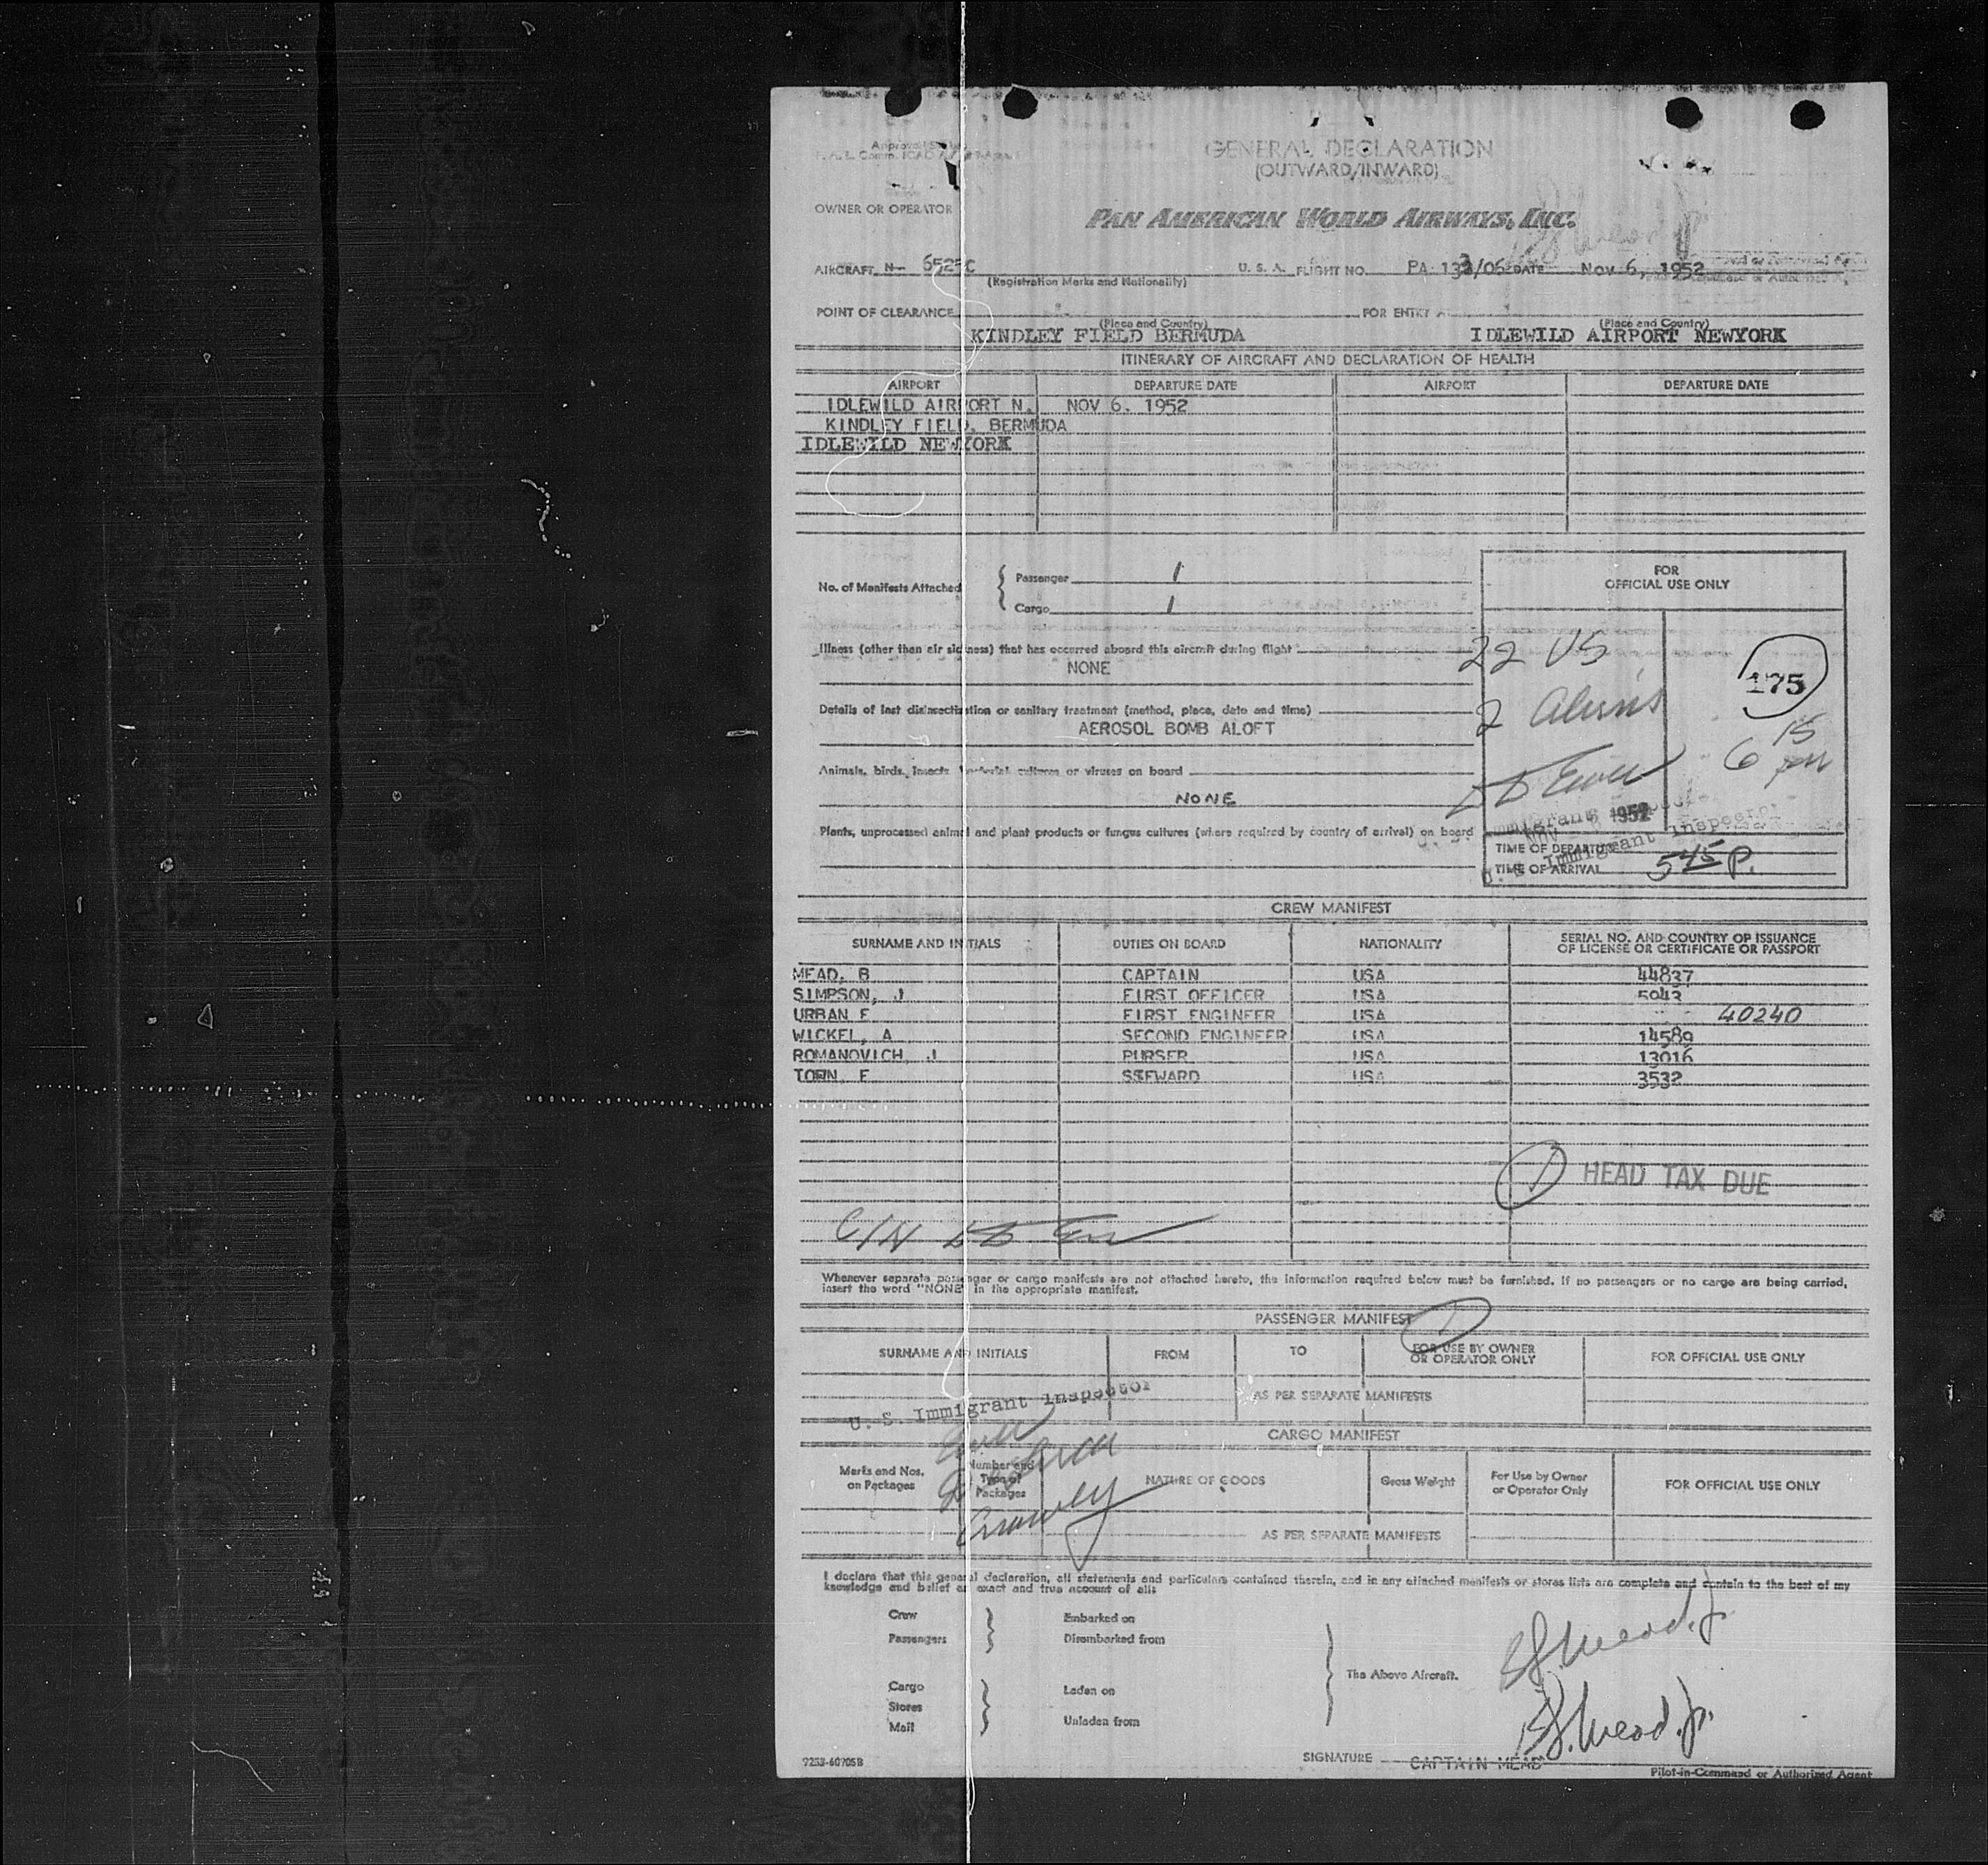 GENERAL DECLARATION
(OUTWARD/INWARD)
OWNER OR OPERATOR
PAN AMERICAN WORLD AIRWAYS, INC.
AIRCRAFT N- U. S. A. FLIGHT NO. DATE Nov 6, 1952
(Registration Marks and Nationality)
POINT OF CLEARANCE FOR ENTRY
(Place and Country) (Place and Country)
KINDLEY FIELD BERMUDA IDLEWILD AIRPORT NEWYORK
ITINERARY OF AIRCRAFT AND DECLARATION OF HEALTH
AIRPORT DEPARTURE DATE AIRPORT DEPARTURE DATE
IDLEWILD AIRPORT N. NOV 6. 1952
KINDLEY FIELD, BERMUDA
IDLEWILD NEWYORK
FOR
OFFICIAL USE ONLY
No. of Manifests Attached { Passenger 1
Cargo 1
22 US
Illness (other than air sickness) that has occurred aboard this aircraft during flight
NONE
175
2 Aliens
Details of last disinsectisation or sanitary treatment (method, place, date and time)
AEROSOL BOMB ALOFT
6 15 pm
Animals, birds, insects, bacterial cultures or viruses on board
NONE
Plants, unprocessed animal and plant products or fungus cultures (where required by country of arrival) on board
U. S. Immigrant Inspector
TIME OF DEPARTURE
TIME OF ARRIVAL 545 P.
CREW MANIFEST
SURNAME AND INITIALS DUTIES ON BOARD NATIONALITY SERIAL NO. AND COUNTRY OF ISSUANCE
OF LICENSE OR CERTIFICATE OR PASSPORT
MEAD, B CAPTAIN USA 44837
SIMPSON, J FIRST OFFICER USA 5043
URBAN F FIRST ENGINEER USA 40240
WICKEL, A SECOND ENGINEER USA 14589
ROMANOVICH, J PURSER USA 13016
STEWARD USA 3532
1 HEAD TAX DUE
Whenever separate passenger or cargo manifests are not attached hereto, the information required below must be furnished. If no passengers or no cargo are being carried,
insert the word "NONE" in the appropriate manifest.
PASSENGER MANIFEST
SURNAME AND INITIALS FROM TO FOR USE BY OWNER
OR OPERATOR ONLY FOR OFFICIAL USE ONLY
AS PER SEPARATE MANIFESTS
U. S. Immigrant Inspector
CARGO MANIFEST
Marks and Nos.
on Packages Number and
Type of
Packages NATURE OF GOODS Gross Weight For Use by Owner
or Operator Only FOR OFFICIAL USE ONLY
AS PER SEPARATE MANIFESTS
I declare that this general declaration, all statements and particulars contained therein, and in any attached manifests or stores lists are complete and contain to the best of my
knowledge and belief an exact and true account of all:
Crew Embarked on
Passengers Disembarked from
The Above Aircraft.
Cargo Laden on
Stores
Mail Unladen from
SIGNATURE CAPTAIN MEAD
Pilot-in-Command or Authorized Agent
7253-60705B